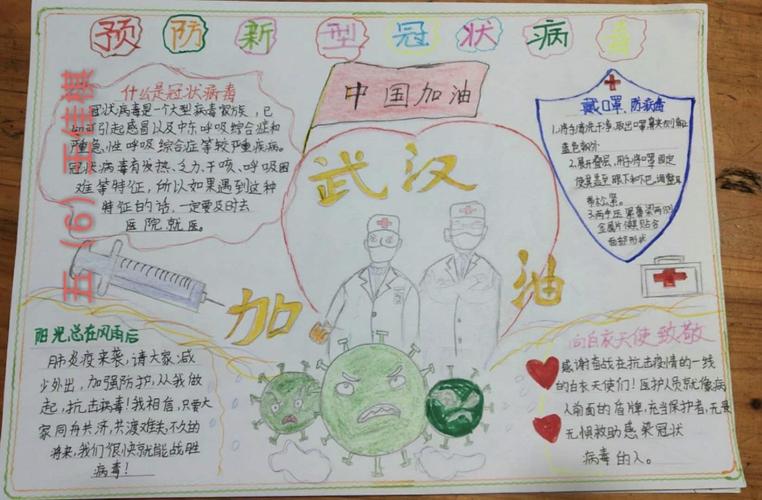 预防新型冠状病毒
什么是冠状病毒
冠状病毒是一个大型病毒家族，已
知可引起感冒以及中东呼吸综合症和
重急性呼吸综合症等较严重疾病。
冠状病毒有发热、乏力、干咳、呼吸困
难等特征，所以如果遇到这种
特征的话，一定要及时去
医院就医。
中国加油
武汉
加油
戴口罩，防病毒
1.将手清洗干净，取出口罩
蓝色朝外
2.展开叠层，用手将口罩固定
使覆盖至眼下和下巴，调整耳
带松紧。
3.两手压紧鼻梁两侧
金属片使其贴合
面部形状
五（6）王佳棋
阳光总在风雨后
肺炎疫来袭，请大家减
少外出，加强防护，从我做
起，抗击病毒！我相信，只要大
家同舟共济，共渡难关，不久的
将来，我们很快就能战胜
病毒！
向白衣天使致敬
感谢奋战在抗击疫情的一线
的白衣天使们！医护人员就像病
人前面的盾牌，充当保护者，无畏
无惧救助感染冠状
病毒的人。